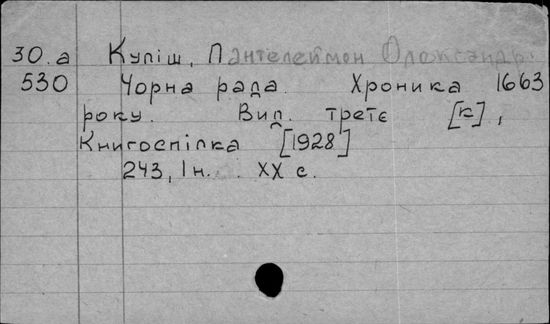 30.а Куліш, Пантелеймон Олександр.
530 Чорна рада. Хроника 1663
року. Вип. третє [К],
Книгоспілка [1928]
243, 1 н. . XX с.